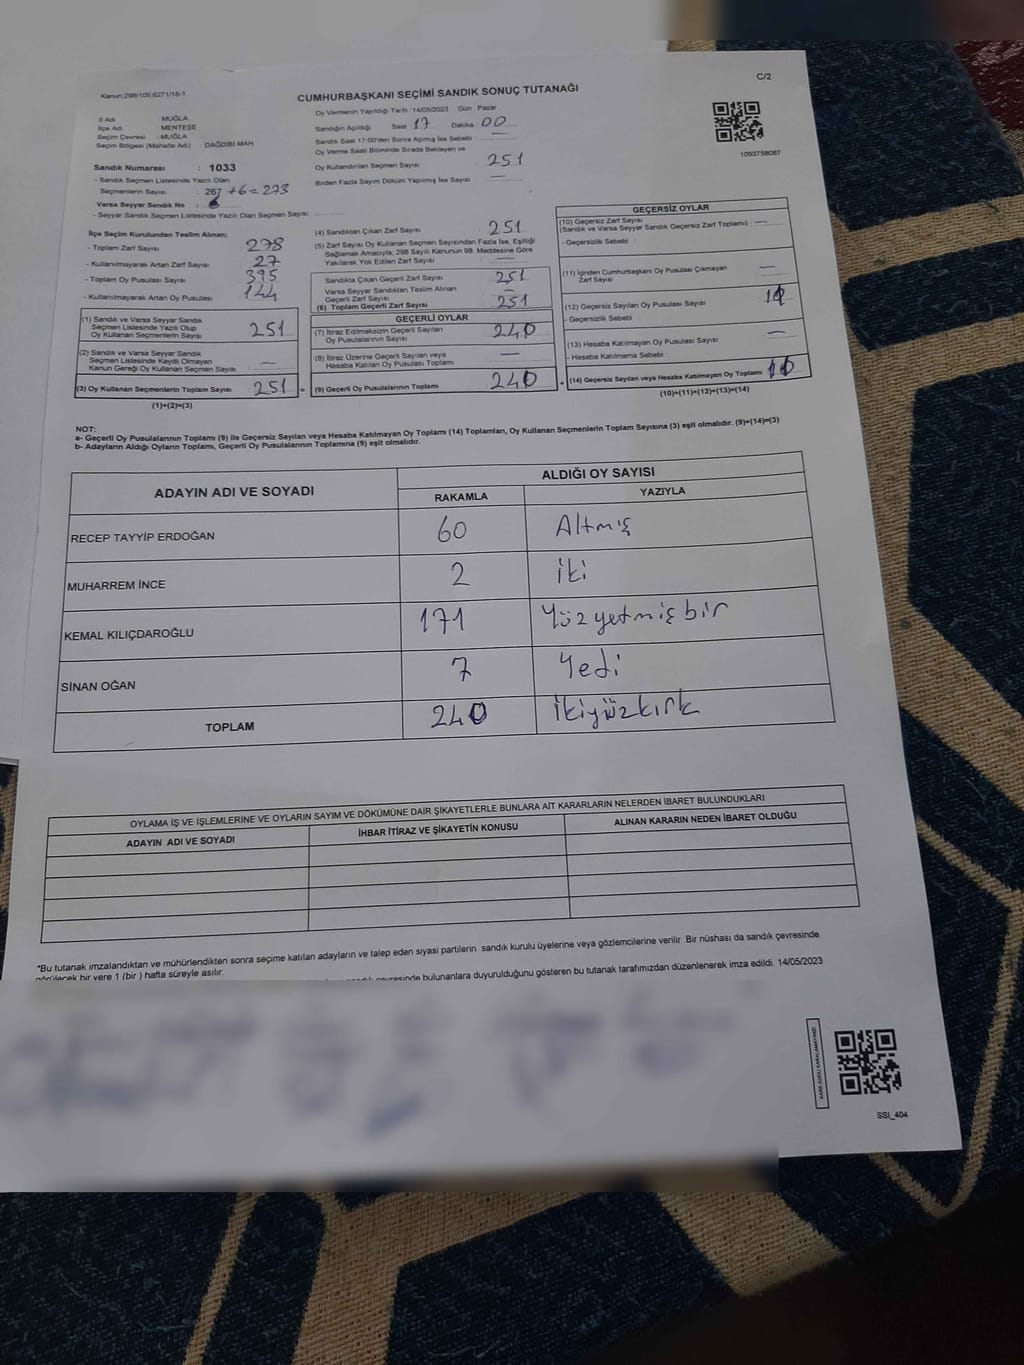 Kanun:298/105:6271/18-1
C/2
CUMHURBAŞKANI SEÇİMİ SANDIK SONUÇ TUTANAĞI
İl Adı : MUĞLA
İlçe Adı : MENTEŞE
Seçim Çevresi : MUĞLA
Seçim Bölgesi (Mahalle Adı) DAĞDİBİ MAH
Sandık Numarası : 1033
- Sandık Seçmen Listesinde Yazılı Olan
Seçmenlerin Sayısı : 267 +6=273
Varsa Seyyar Sandık No :
- Seyyar Sandık Seçmen Listesinde Yazılı Olan Seçmen Sayısı
Oy Vermenin Yapıldığı Tarih : 14/05/2023 Gün : Pazar
Sandığın Açıldığı Saat 17 Dakika 00
Sandık Saat 17:00'den Sonra Açılmış İse Sebebi —
Oy Verme Saati Bitiminde Sırada Bekleyen ve
Oy Kullandırılan Seçmen Sayısı 251
Birden Fazla Sayım Döküm Yapılmış İse Sayısı —
1093758087
İlçe Seçim Kurulundan Teslim Alınan;
- Toplam Zarf Sayısı 278
- Kullanılmayarak Artan Zarf Sayısı 27
- Toplam Oy Pusulası 395
- Kullanılmayarak Artan Oy Pusulası 144
(1) Sandık ve Varsa Seyyar Sandık
Seçmen Listesinde Yazılı Olup
Oy Kullanan Seçmenlerin Sayısı 251
(2) Sandık ve Varsa Seyyar Sandık
Seçmen Listesinde Kaydı Olmayan
Kanun Gereği Oy Kullanan Seçmen Sayısı —
(3) Oy Kullanan Seçmenlerin Toplam Sayısı 251 =
(1)+(2)=(3)
(4) Sandıktan Çıkan Zarf Sayısı 251
(5) Zarf Sayısı Oy Kullanan Seçmen Sayısından Fazla İse, Eşitliği
Sağlamak Amacıyla; 298 Sayılı Kanunun 98. Maddesine Göre
Yakılarak Yok Edilen Zarf Sayısı —
Sandıkta Çıkan Geçerli Zarf Sayısı 251
Varsa Seyyar Sandıktan Teslim Alınan
Geçerli Zarf Sayısı —
(6) Toplam Geçerli Zarf Sayısı 251
GEÇERLİ OYLAR
(7) İtiraz Edilmeksizin Geçerli Sayılan
Oy Pusulası Sayısı 240
(8) İtiraz Üzerine Geçerli Sayılan veya
Hesaba Katılan Oy Pusulası Toplamı —
(9) Geçerli Oy Pusulalarının Toplamı 240 +
GEÇERSİZ OYLAR
(10) Geçersiz Zarf Sayısı
(Sandık ve Varsa Seyyar Sandık Geçersiz Zarf Toplamı) : —
- Geçersizlik Sebebi :
(11) İçinden Cumhurbaşkanı Oy Pusulası Çıkmayan
Zarf Sayısı —
(12) Geçersiz Sayılan Oy Pusulası Sayısı
- Geçersizlik Sebebi
(13) Hesaba Katılmayan Oy Pusulası Sayısı —
- Hesaba Katılmama Sebebi
(14) Geçersiz Sayılan veya Hesaba Katılmayan Oy Toplamı
(10)+(11)+(12)+(13)=(14)
NOT:
a- Geçerli Oy Pusulalarının Toplamı (9) ile Geçersiz Sayılan veya Hesaba Katılmayan Oy Toplamı (14) Toplamları, Oy Kullanan Seçmenlerin Toplam Sayısına (3) eşit olmalıdır. (9)+(14)=(3)
b- Adayların Aldığı Oyların Toplamı, Geçerli Oy Pusulalarının Toplamına (9) eşit olmalıdır.
ADAYIN ADI VE SOYADI
ALDIĞI OY SAYISI
RAKAMLA YAZIYLA
RECEP TAYYİP ERDOĞAN 60 Altmış
MUHARREM İNCE 2 iki
KEMAL KILIÇDAROĞLU 171 Yüzyetmişbir
SİNAN OĞAN 7 Yedi
TOPLAM 240 ikiyüzkırk
OYLAMA İŞ VE İŞLEMLERİNE VE OYLARIN SAYIM VE DÖKÜMÜNE DAİR ŞİKAYETLERLE BUNLARA AİT KARARLARIN NELERDEN İBARET BULUNDUKLARI
ADAYIN ADI VE SOYADI İHBAR İTİRAZ VE ŞİKAYETİN KONUSU ALINAN KARARIN NEDEN İBARET OLDUĞU
*Bu tutanak imzalandıktan ve mühürlendikten sonra seçime katılan adayların ve talep eden siyasi partilerin sandık kurulu üyelerine veya gözlemcilerine verilir. Bir nüshası da sandık çevresinde
görülecek bir yere 1 (bir) hafta süreyle asılır.
sandık çevresinde bulunanlara duyurulduğunu gösteren bu tutanak tarafımızdan düzenlenerek imza edildi. 14/05/2023
KARE KODU KARALAMAYINIZ!
SSI_404